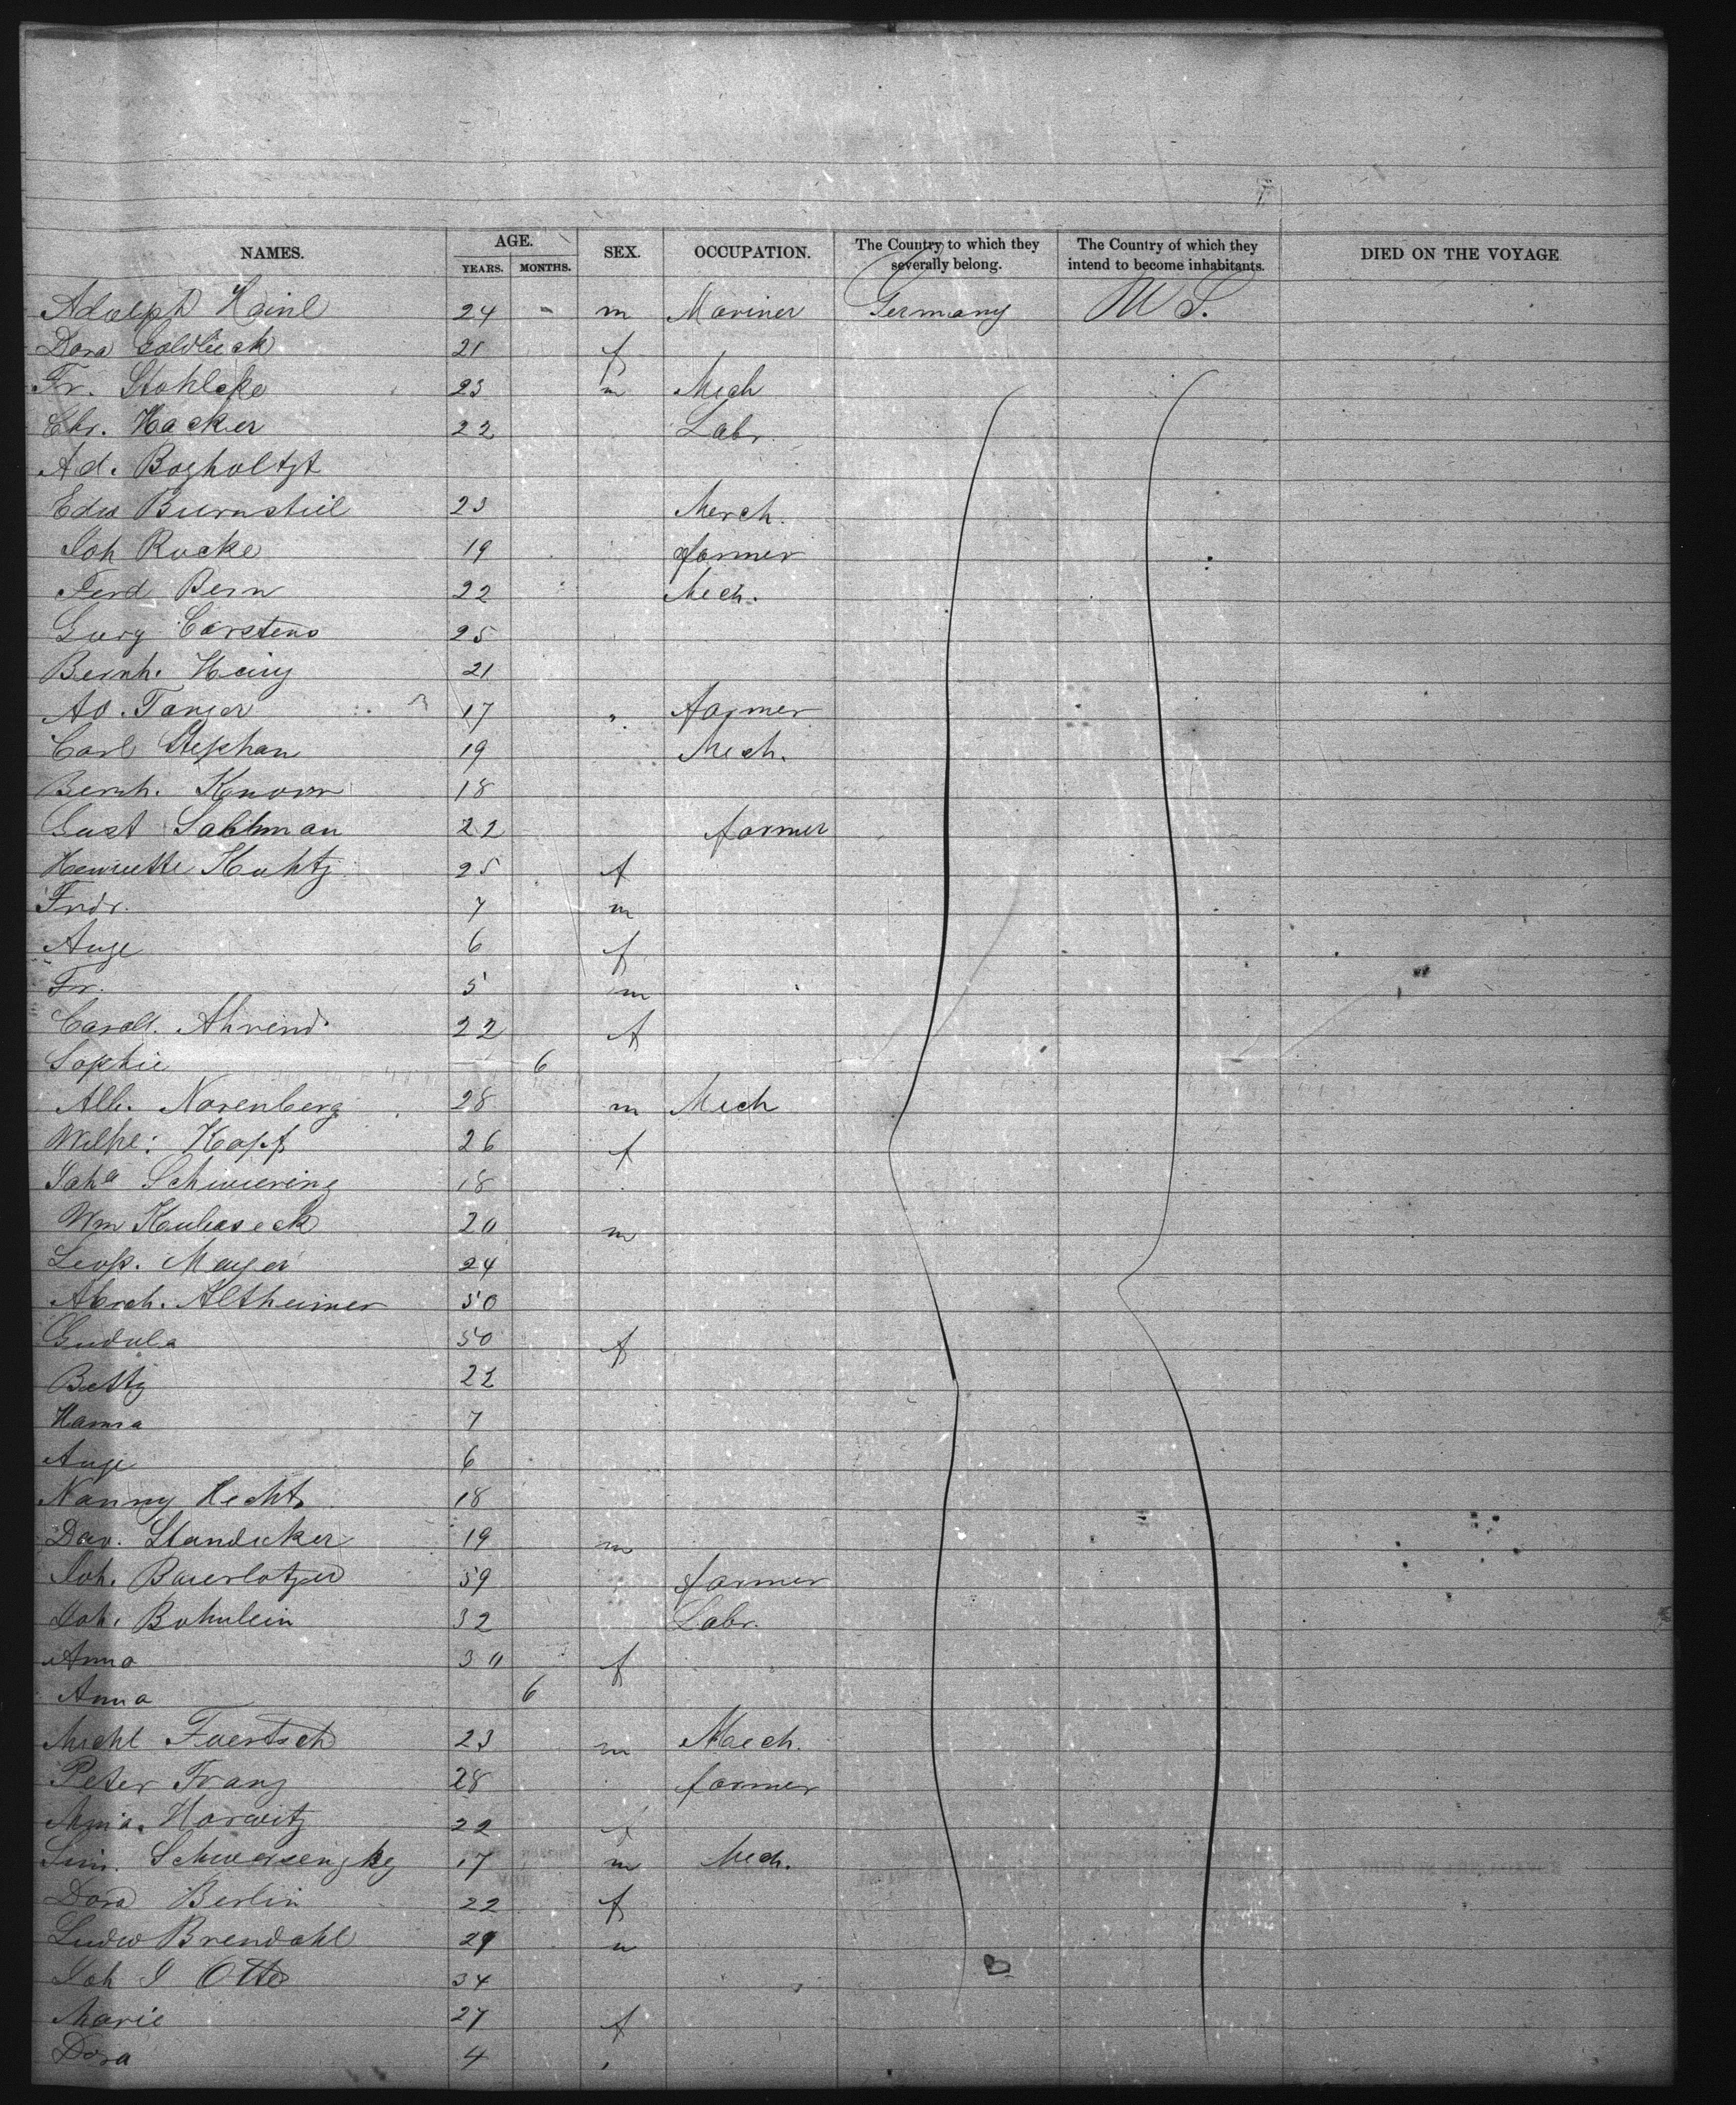 NAMES. AGE. YEARS. MONTHS. SEX. OCCUPATION. The Country to which they severally belong. The Country of which they intend to become inhabitants. DIED ON THE VOYAGE
Adolph Hainl 24 - m Mariner Germany U S.
Dora Goldbeck 21 f
Fr. Stohlcke 23 m Mech
Chr. Hacker 22 Labr.
Ad. Bogholtzt
Edw Buernstiel 23 Merch.
Joh Rucke 19 farmer
Ferd Bern 22 Mech.
Georg Carstens 25
Bernh. Heinz 21
Ad. Tanger 17 " farmer
Carl Stephan 19 Mech.
Bernh. Knorr 18
Gust Sahlman 22 farmer
Henriette Kuhtz 25 f
Fridr. 7 m
Auge 6 f
Fr. 5 m
Carol. Ahrend 22 f
Sophie 6
Alb. Norenberg 28 m Mech
Wilhe: Kopf 26 f
Joha Schwiering 18
Wm 20 m
Leop. Mayer 24
Abrah. Altheimer 50
Gudula 50 f
Betty 22
Hanna 7
Auge 6
Nanny Hecht 18
Dav. Standecker 19 m
Joh. Bauerlotzer 59 farmer
Joh. Bohnlein 32 Labr.
Anna 30 f
Anna 6
Michl Foertsch 23 m Mech.
Peter Franz 28 farmer
Horwitz 22 f
Sim. 17 m Mech.
Dora Berlin 22 f
Ludw Brendahl 29 m
Joh J Otto 34
Marie 27 f
Dora 4 "